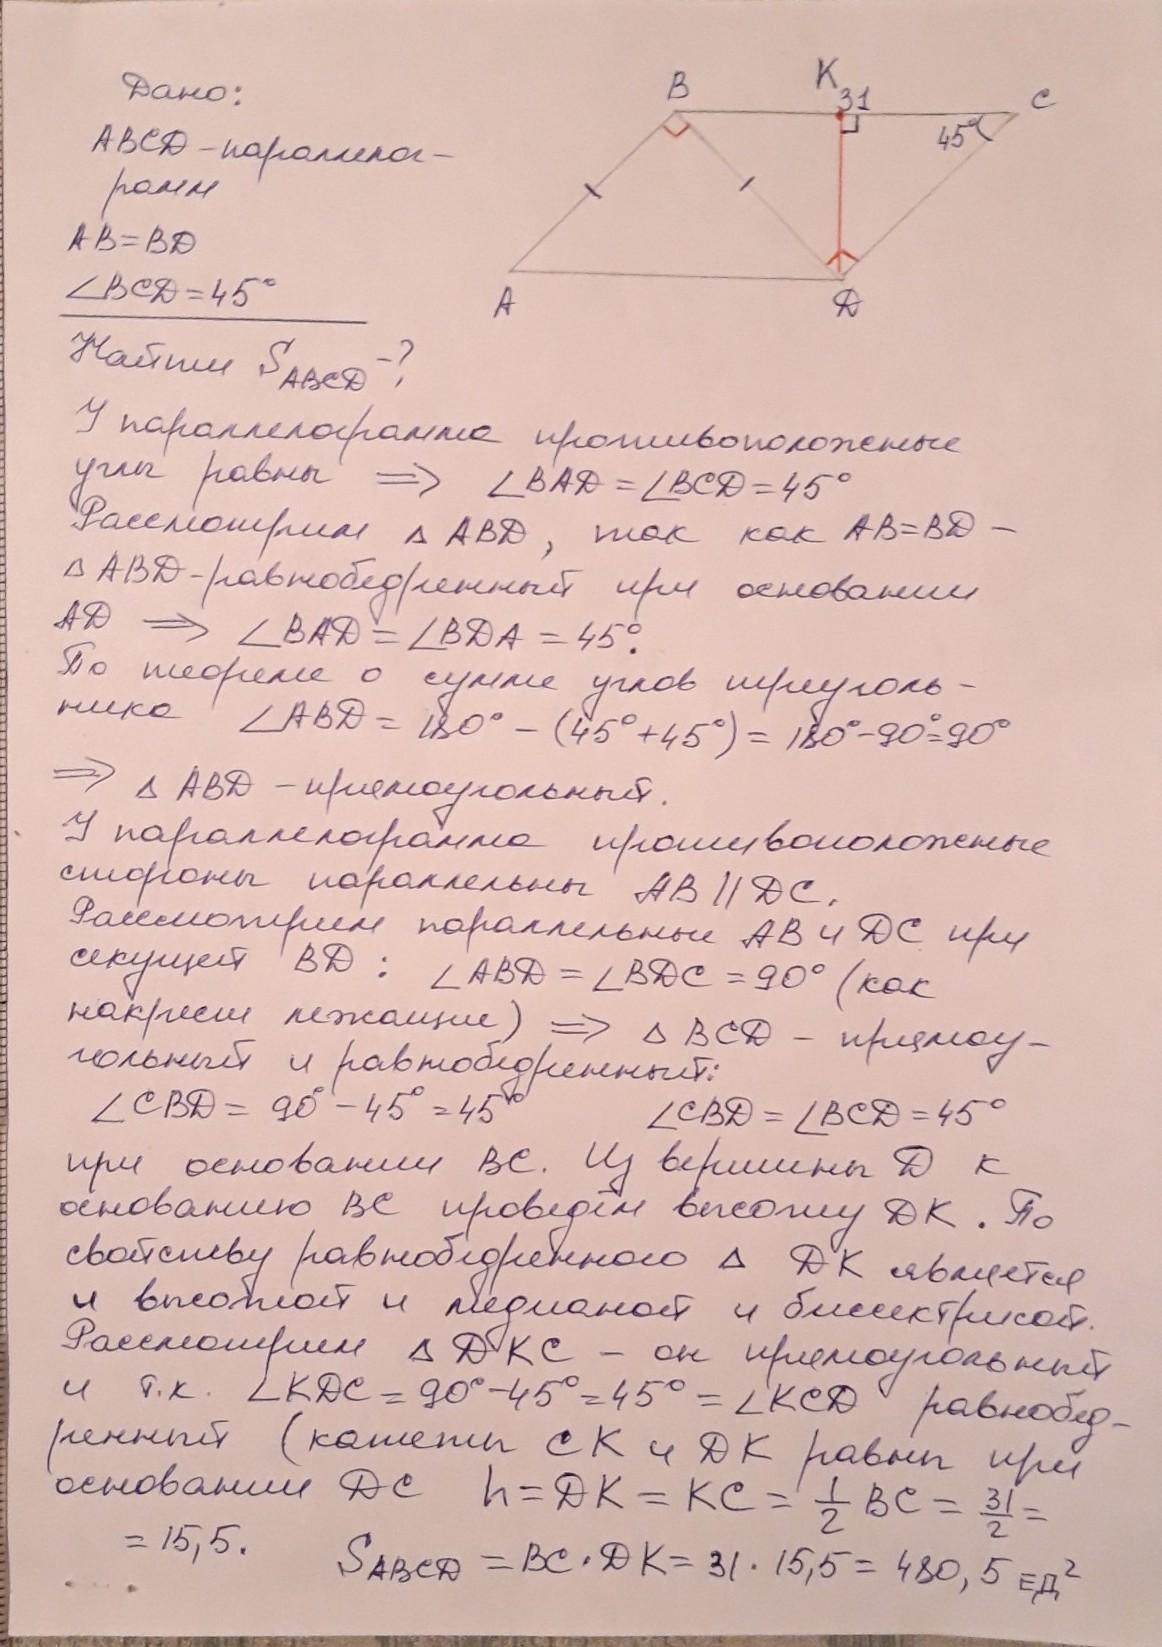 Дано:
ABCD - параллелог-
рамм
AB = BD
∠BCD = 45°
B
K
31
C
45°
A
D
Найти S_ABCD - ?
У параллелограмма противоположные
углы равны ⇒ ∠BAD = ∠BCD = 45°
Рассмотрим △ ABD, так как AB = BD -
△ ABD - равнобедренный при основании
AD ⇒ ∠BAD = ∠BDA = 45°.
По теореме о сумме углов треуголь-
ника ∠ABD = 180° - (45° + 45°) = 180° - 90° = 90°
⇒ △ ABD - прямоугольный.
У параллелограмма противоположные
стороны параллельны AB || DC.
Рассмотрим параллельные AB и DC при
секущей BD: ∠ABD = ∠BDC = 90° (как
накрест лежащие) ⇒ △ BCD - прямоу-
гольный и равнобедренный:
∠CBD = 90° - 45° = 45° ∠CBD = ∠BCD = 45°
при основании BC. Из вершины D к
основанию BC проведём высоту DK. По
свойству равнобедренного △ DK является
и высотой и медианой и биссектрисой.
Рассмотрим △ DKC - он прямоугольный
и т.к. ∠KDC = 90° - 45° = 45° = ∠KCD равнобед-
ренный (катеты CK и DK равны при
основании DC h = DK = KC = 1/2 BC = 31/2 =
= 15,5.
S_ABCD = BC · DK = 31 · 15,5 = 480,5 ед²